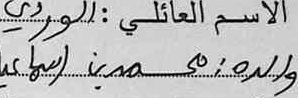 الاسم العائلي : الوردي
والده : محمد بن اسماعيل